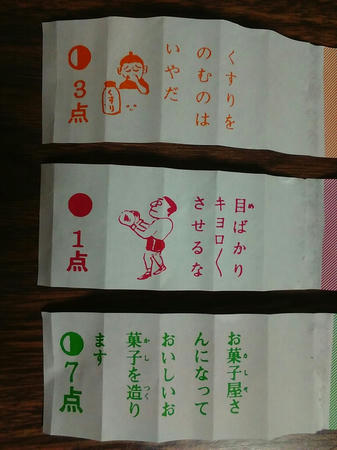 くすりを
のむのは
いやだ
くすり
3点
目ばかり
め
キヨロ〱
させるな
1点
お菓子屋さ
かしや
んになって
おいしいお
菓子を造り
かし つく
ます
7点